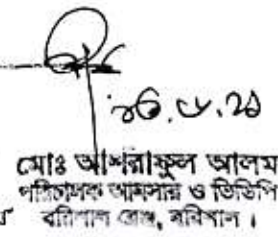 ২৬.৮.২১
মোঃ আশরাফুল আলম
পরিচালক আনসার ও ভিডিপি
বরিশাল রেঞ্জ, বরিশাল।